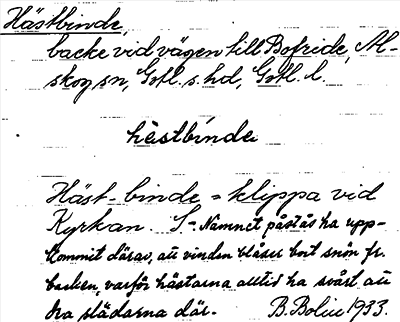 Hästbinde,
backe vid vägen till Bofride, Al-
skog sn, Gotl. s. hd, Gotl. l.
hèstbinde
Häst-binde = klippa vid
Kyrkan. S.- Namnet påstås ha upp-
kommit därav, att vinden blåser bort snön fr.
backen, varför hästarna alltid ha svårt att
dra slädarna där. B. Bolin 1933.